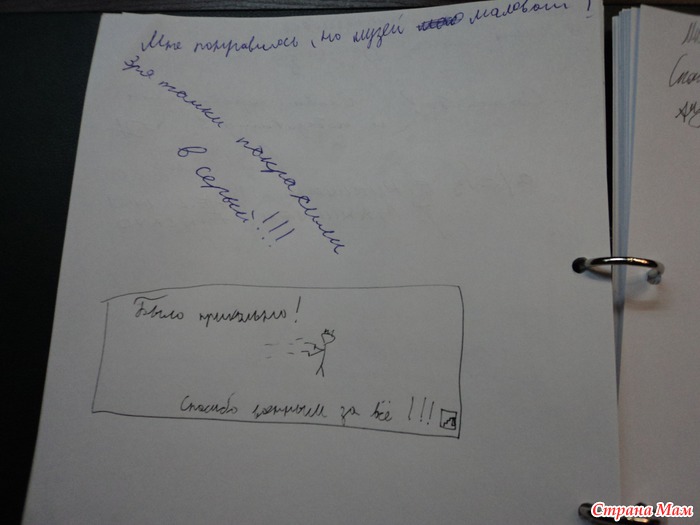 Мне понравилось, но музей маловат!
Зря танки покрасили
в серый!!!
Было прикольно!
Спасибо военным за всё!!!
Страна Мам